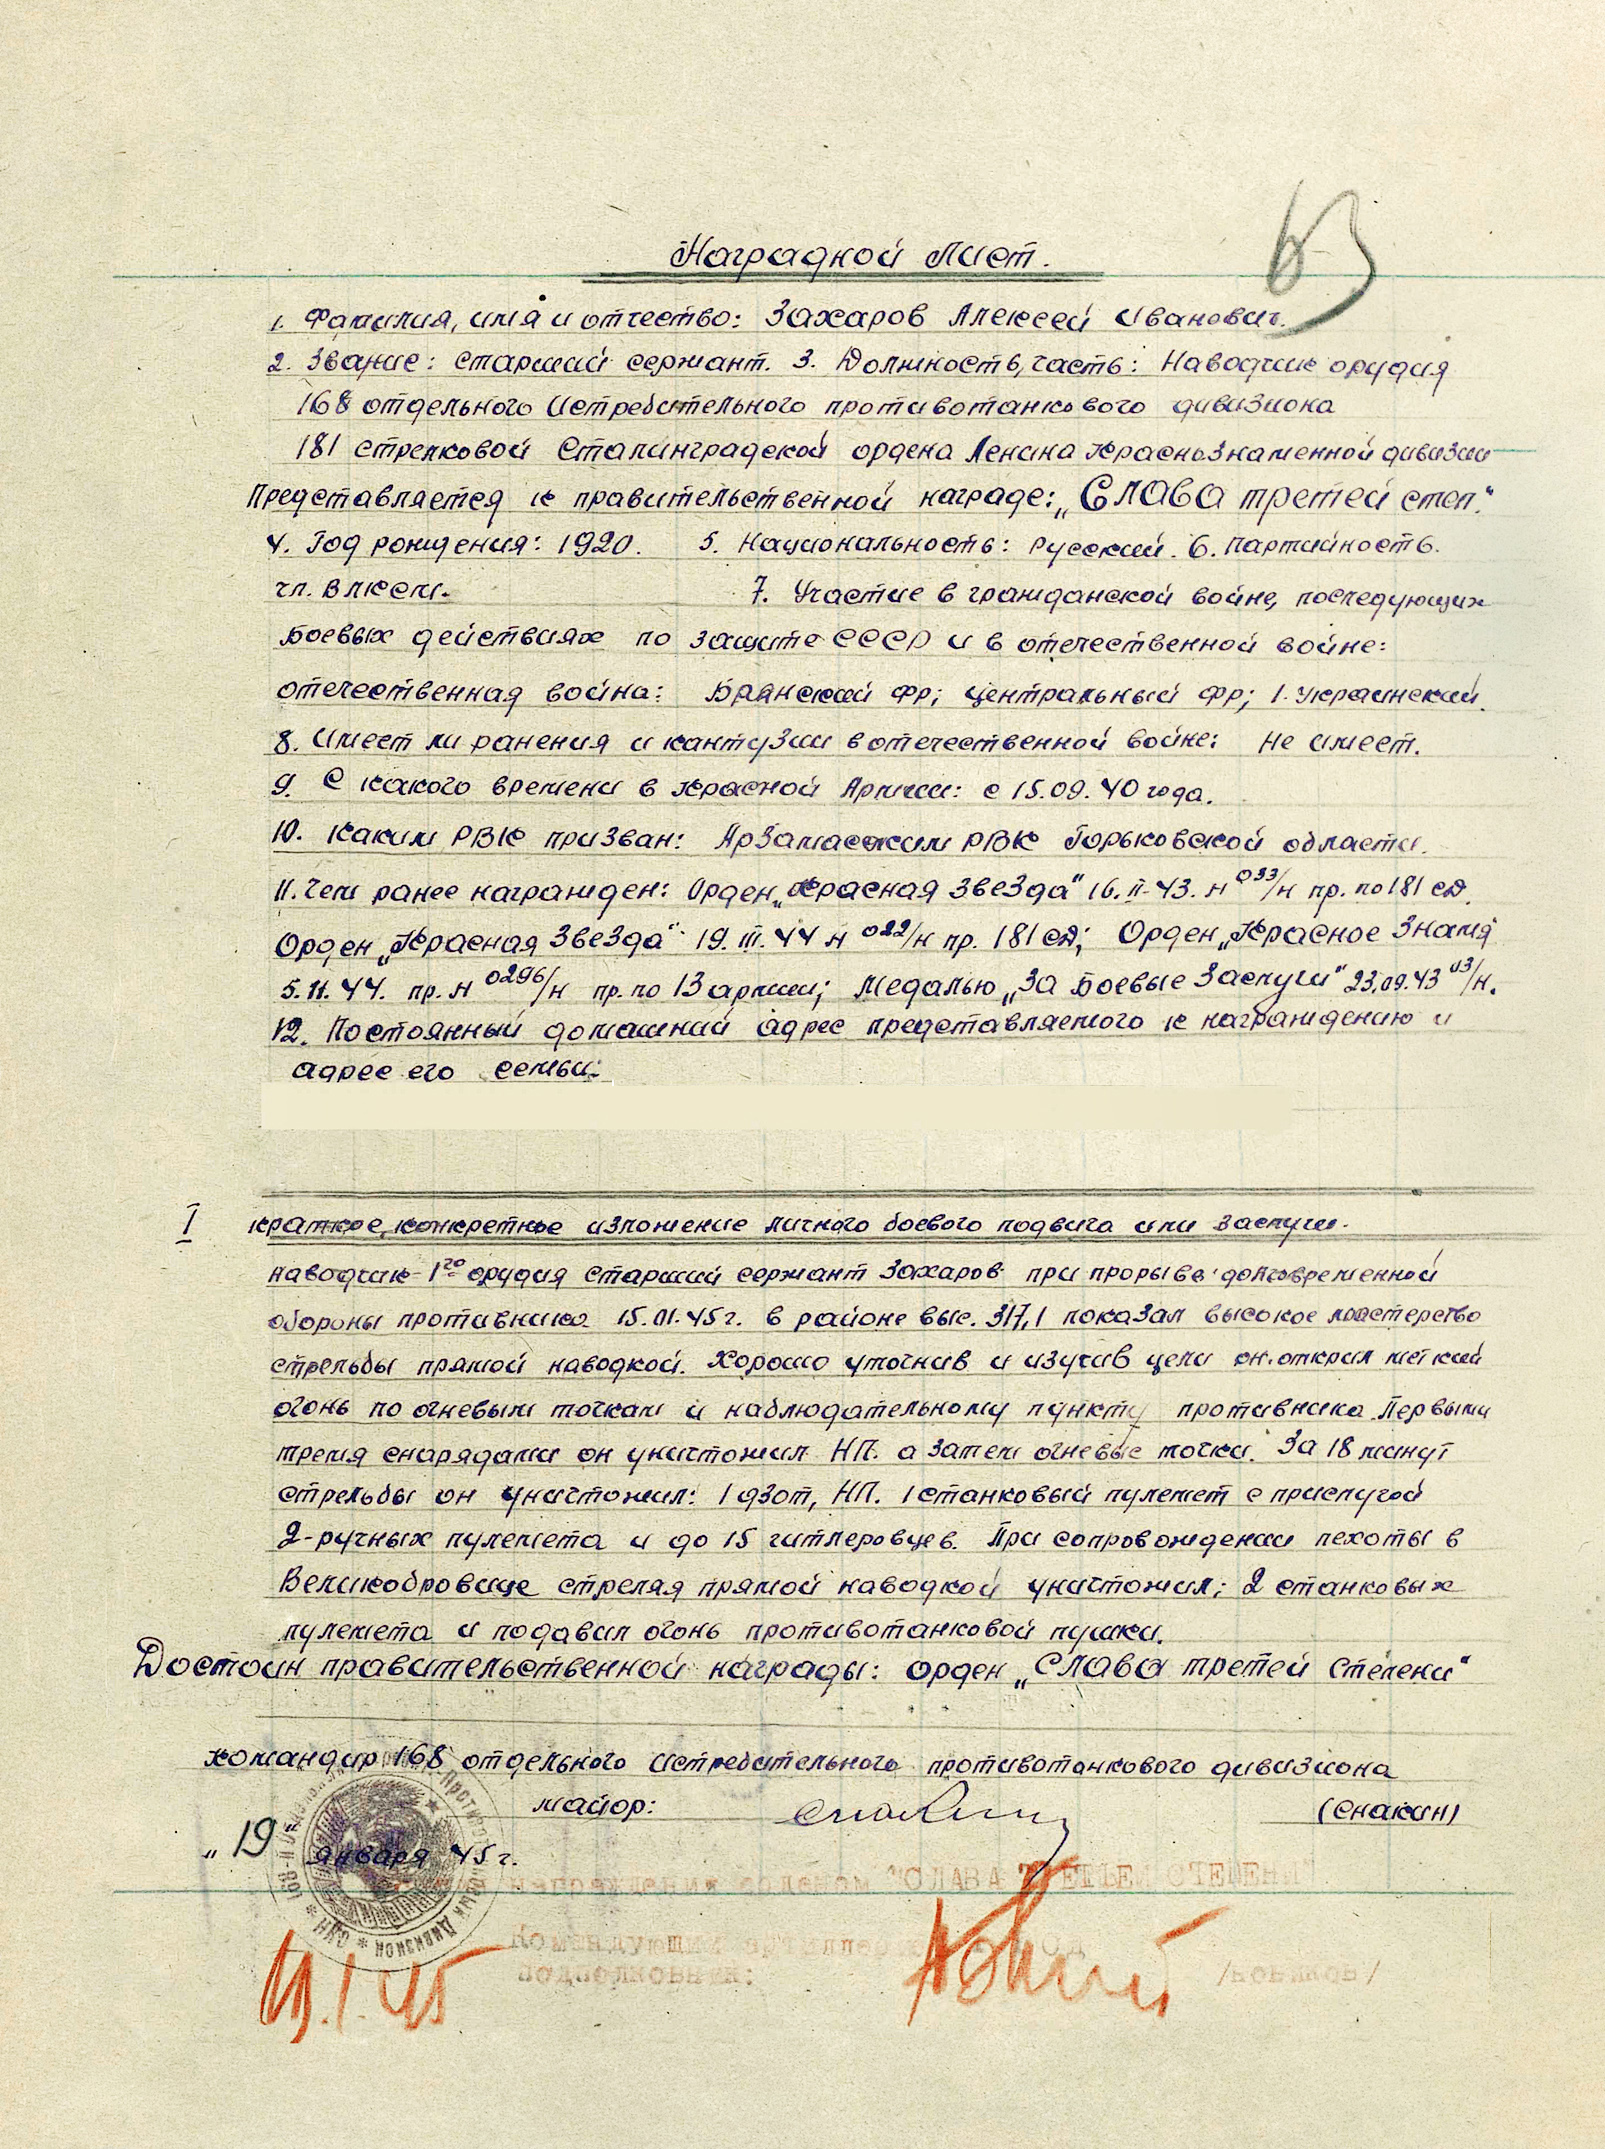 63
Наградной Лист.
1. Фамилия, имя и отчество: Захаров Алексей Иванович.
2. Звание: старший сержант. 3. Должность, часть: Наводчик орудия
168 отдельного Истребительного противотанкового дивизиона
181 стрелковой Сталинградской ордена Ленина Краснознаменной дивизии
Представляется к правительственной награде: „Слава третей степ."
4. Год рождения: 1920. 5. Национальность: Русский. 6. Партийность.
чл. ВЛКСМ. 7. Участие в гражданской войне, последующих
боевых действиях по защите СССР и в отечественной войне:
отечественная война: Брянский фр; Центральный фр; 1. Украинский.
8. Имеет ли ранения и кантузии в отечественной войне: Не имеет.
9. С какого времени в Красной Армии: с 15.09.40 года.
10. Каким РВК призван: Арзамасским РВК Горьковской области.
11. Чем ранее награжден: Орден „Красная Звезда" 16.II-43. н 033/н пр. по 181 сд.
Орден „Красная Звезда" 19.III.44 н 022/н пр. 181 сд; Орден „Красное Знамя"
5.11.44. пр. н 0296/н пр. по 13 армии; Медалью „За Боевые Заслуги" 23.09.43 03/н.
12. Постоянный домашний адрес представляемого к награждению и
адрес его семьи:
I Краткое, конкретное изложение личного боевого подвига или заслуги.
Наводчик 1го орудия старший сержант Захаров при прорыве долговременной
обороны противника 15.01.45г. в районе выс. 317,1 показал высокое мастерство
стрельбы прямой наводкой. Хорошо уточнив и изучив цели он открыл меткий
огонь по огневым точкам и наблюдательному пункту противника. Первыми
тремя снарядами он уничтожил НП. а затем огневые точки. За 18 минут
стрельбы он уничтожил: 1 дзот, НП. 1 станковый пулемет с прислугой
2-ручных пулемета и до 15 гитлеровцев. При сопровождении пехоты в
Великобровице стреляя прямой наводкой уничтожил: 2 станковых
пулемета и подавил огонь противотанковой пушки.
Достоин правительственной награды: орден „Слава третей степени"
Командир 168 отдельного Истребительного противотанкового дивизиона
майор: (Снакин)
„19" января 45 г.
награждения орденом "СЛАВА ТРЕТЬЕЙ СТЕПЕНИ"
Командующий
подполковник: /Новиков/
19.1.45